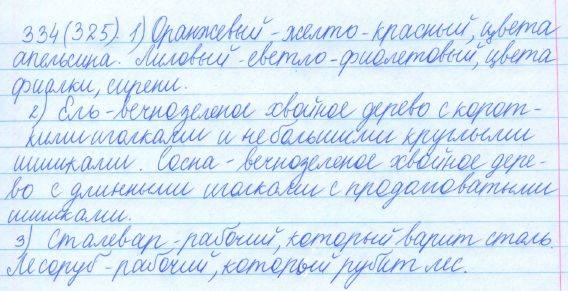 334(325). 1) Оранжевый - желто-красный, цвета
апельсина. Лиловый - светло-фиолетовый, цвета
фиалки, сирени.
2) Ель - вечнозеленое хвойное дерево с корот-
кими иголками и небольшими круглыми
шишками. Сосна - вечнозеленое хвойное дере-
во с длинными иголками с продолговатыми
шишками.
3) Сталевар - рабочий, который варит сталь.
Лесоруб - рабочий, который рубит лес.